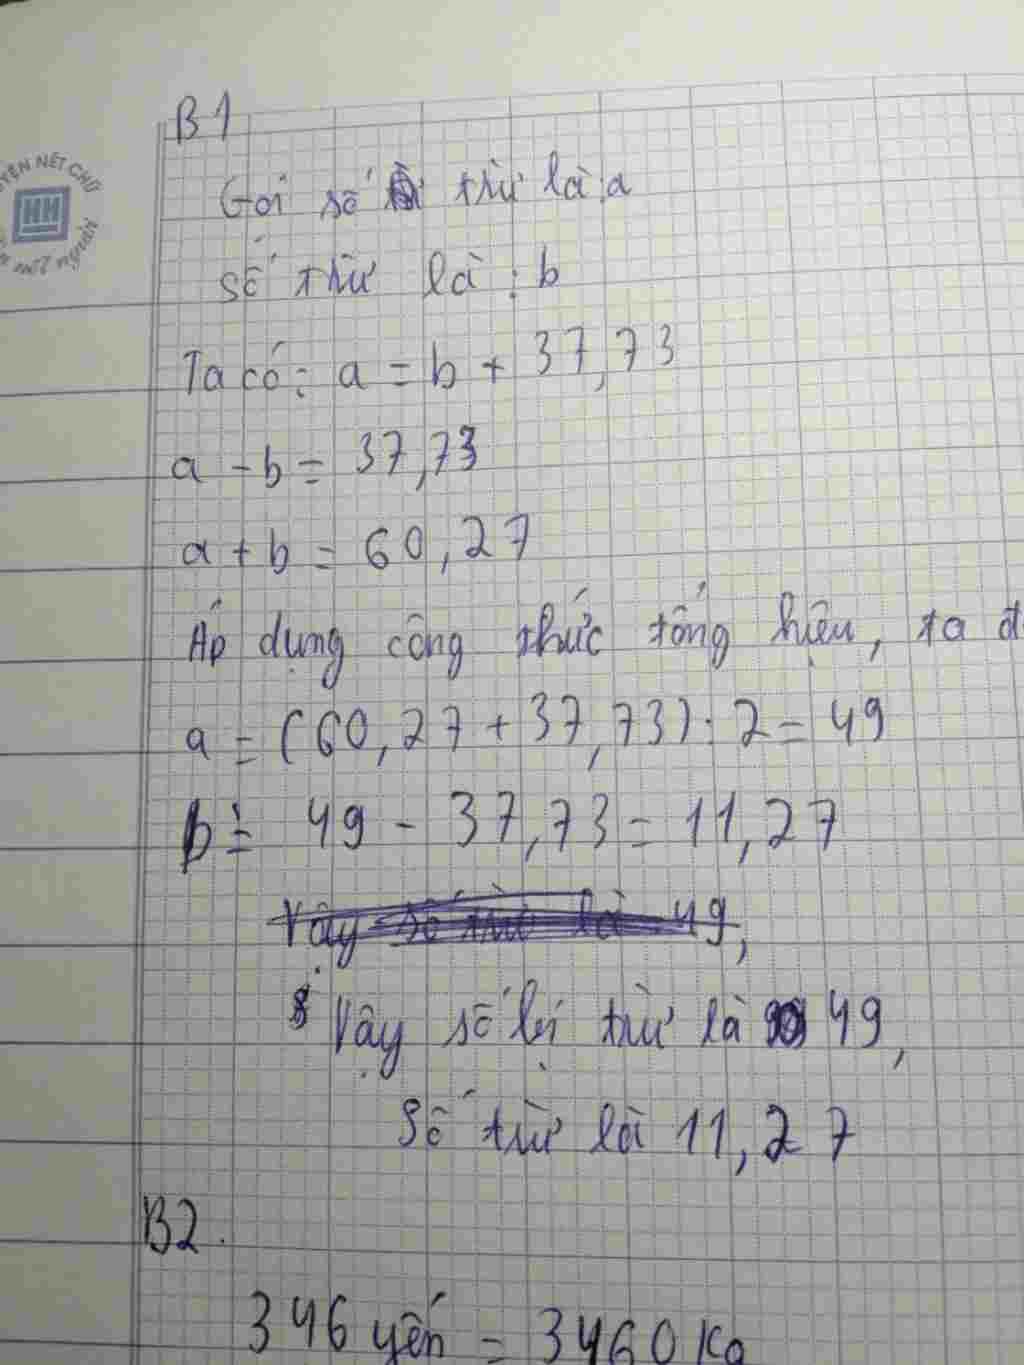 B1
Gọi số bị trừ là: a
số trừ là: b
Ta có: a = b + 37,73
a - b = 37,73
a + b = 60,27
Áp dụng công thức tổng hiệu, ta đ
a = (60,27 + 37,73) : 2 = 49
b = 49 - 37,73 = 11,27
Vậy số trừ là 49,
Vậy số bị trừ là 49,
Số trừ là 11,27
B2.
346 yến = 3460 Kg
HH
NÉT CHỮ